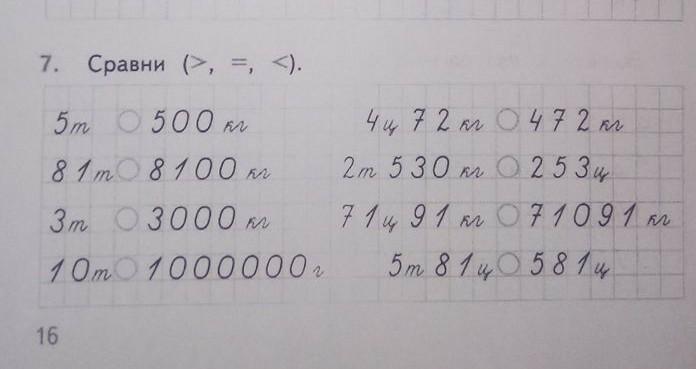 7. Сравни (>, =, <).
5т ○ 500 кг 4ц 72 кг ○ 472 кг
81т ○ 8100 кг 2т 530 кг ○ 253ц
3т ○ 3000 кг 71ц 91 кг ○ 71091 кг
10т ○ 1000000г 5т 81ц ○ 581ц
16